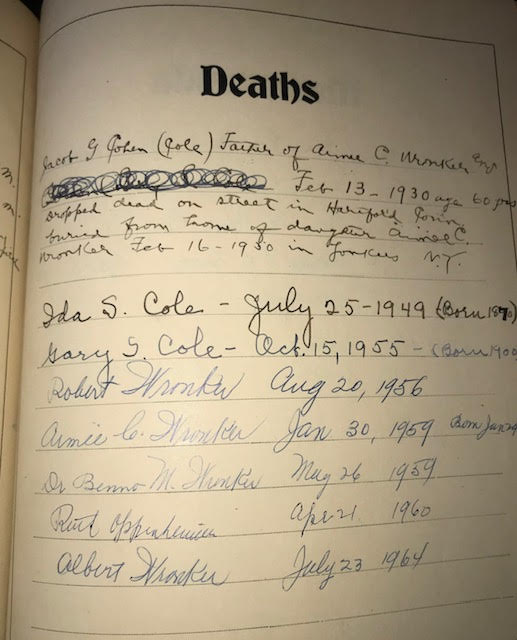 Deaths
Jacob G Cohen (Cole) Father of Aimee C. Wronker
Feb 13 - 1930 age 60 yrs
Dropped dead on street in Hartford Conn
buried from home of daughter Aimee C.
Wronker Feb 16 - 1930 in Yonkers N.Y.
Ida S. Cole - July 25 - 1949 (Born 1870)
Gary S. Cole - Oct. 15, 1955 - (Born 1900
Robert Wronker Aug 20, 1956
Aimee C. Wronker Jan 30, 1959 Born Jan
Dr Benno M. Wronker May 26 1959
Ruth Oppenheimer Apr 21 1960
Albert Wronker July 23 1964